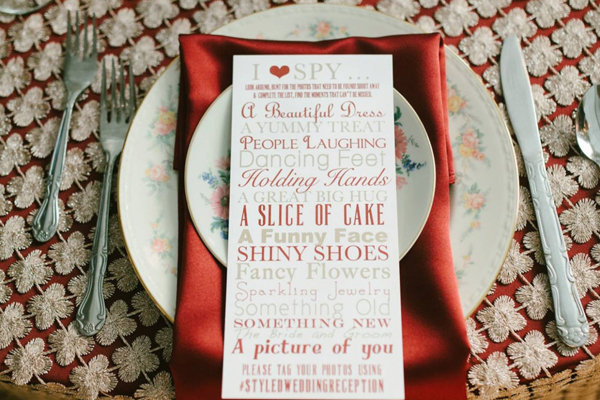 I ❤ SPY...
LOOK AROUND, HUNT FOR THE PHOTOS THAT NEED TO BE FOUND! SHOOT AWAY
& COMPLETE THE LIST, FIND THE MOMENTS THAT CAN'T BE MISSED.
A Beautiful Dress
A YUMMY TREAT
PEOPLE LAUGHING
Dancing Feet
Holding Hands
A GREAT BIG HUG
A SLICE OF CAKE
A Funny Face
SHINY SHOES
Fancy Flowers
Sparkling Jewelry
Something Old
SOMETHING NEW
The Bride and Groom
A picture of you
PLEASE TAG YOUR PHOTOS USING
#STYLEDWEDDINGRECEPTION